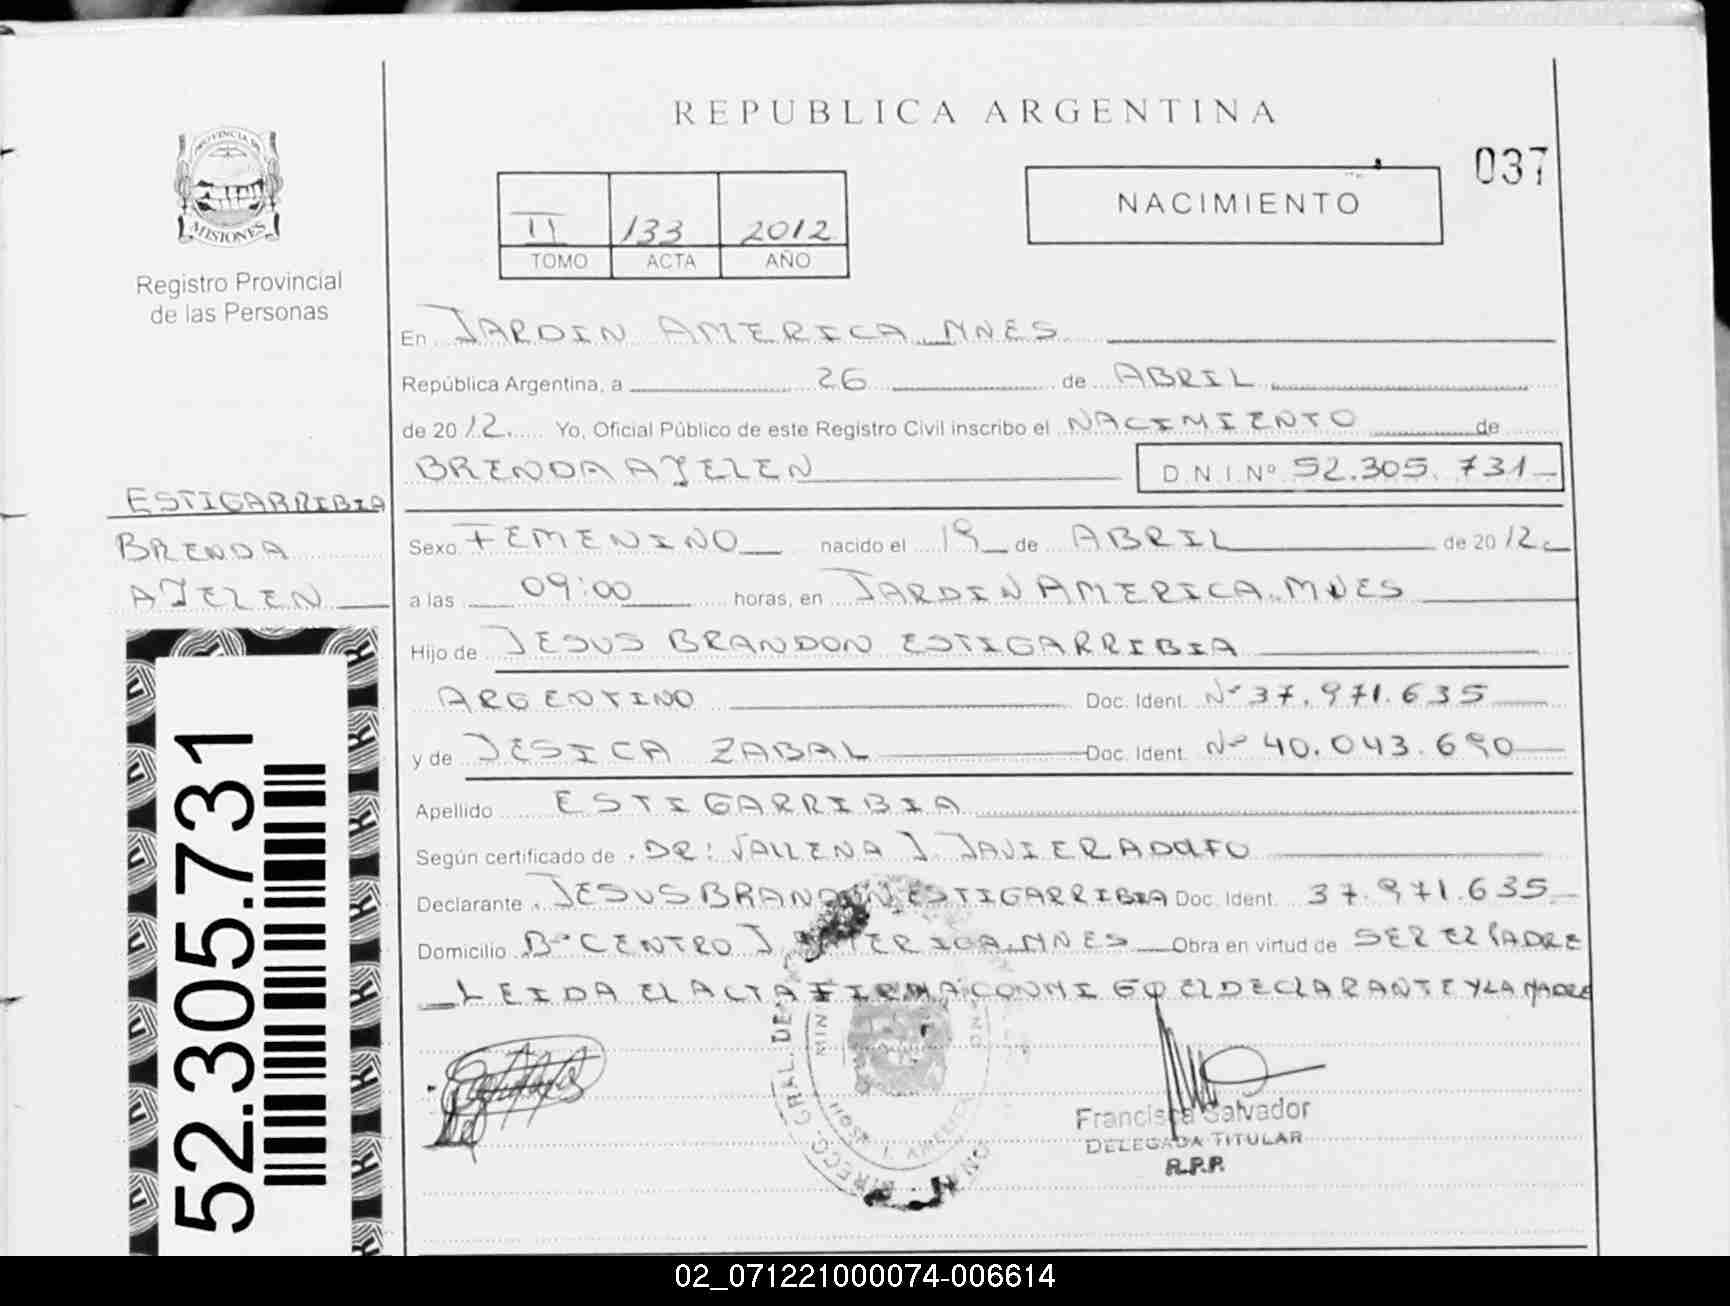 REPUBLICA ARGENTINA
037
PROVINCIA DE
MISIONES
Registro Provincial
de las Personas
II 133 2012
TOMO ACTA AÑO
NACIMIENTO
En JARDIN AMERICA MNES
República Argentina, a 26 de ABRIL
de 2012. Yo, Oficial Público de este Registro Civil inscribo el NACIMIENTO de
BRENDA AJELEN D.N.I.Nº 52.305.731
ESTIGARRIBIA
BRENDA
AJELEN
Sexo FEMENINO nacido el 19 de ABRIL de 2012
a las 09:00 horas, en JARDIN AMERICA.MNES
Hijo de JESUS BRANDON ESTIGARRIBIA
ARGENTINO Doc. Ident. Nº 37.971.635
y de JESICA ZABAL Doc. Ident. Nº 40.043.690
Apellido ESTIGARRIBIA
Según certificado de DR: VALLENA J. JAVIER ADOLFO
Declarante JESUS BRANDON ESTIGARRIBIA Doc. Ident. 37.971.635
Domicilio Bº CENTRO J AMERICA.MNES Obra en virtud de SER EL PADRE
LEIDA EL ACTA FIRMA CONMIGO EL DECLARANTE Y LA MADRE
52.305.731
Francisca Salvador
DELEGADA TITULAR
R.P.P.
02_071221000074-006614